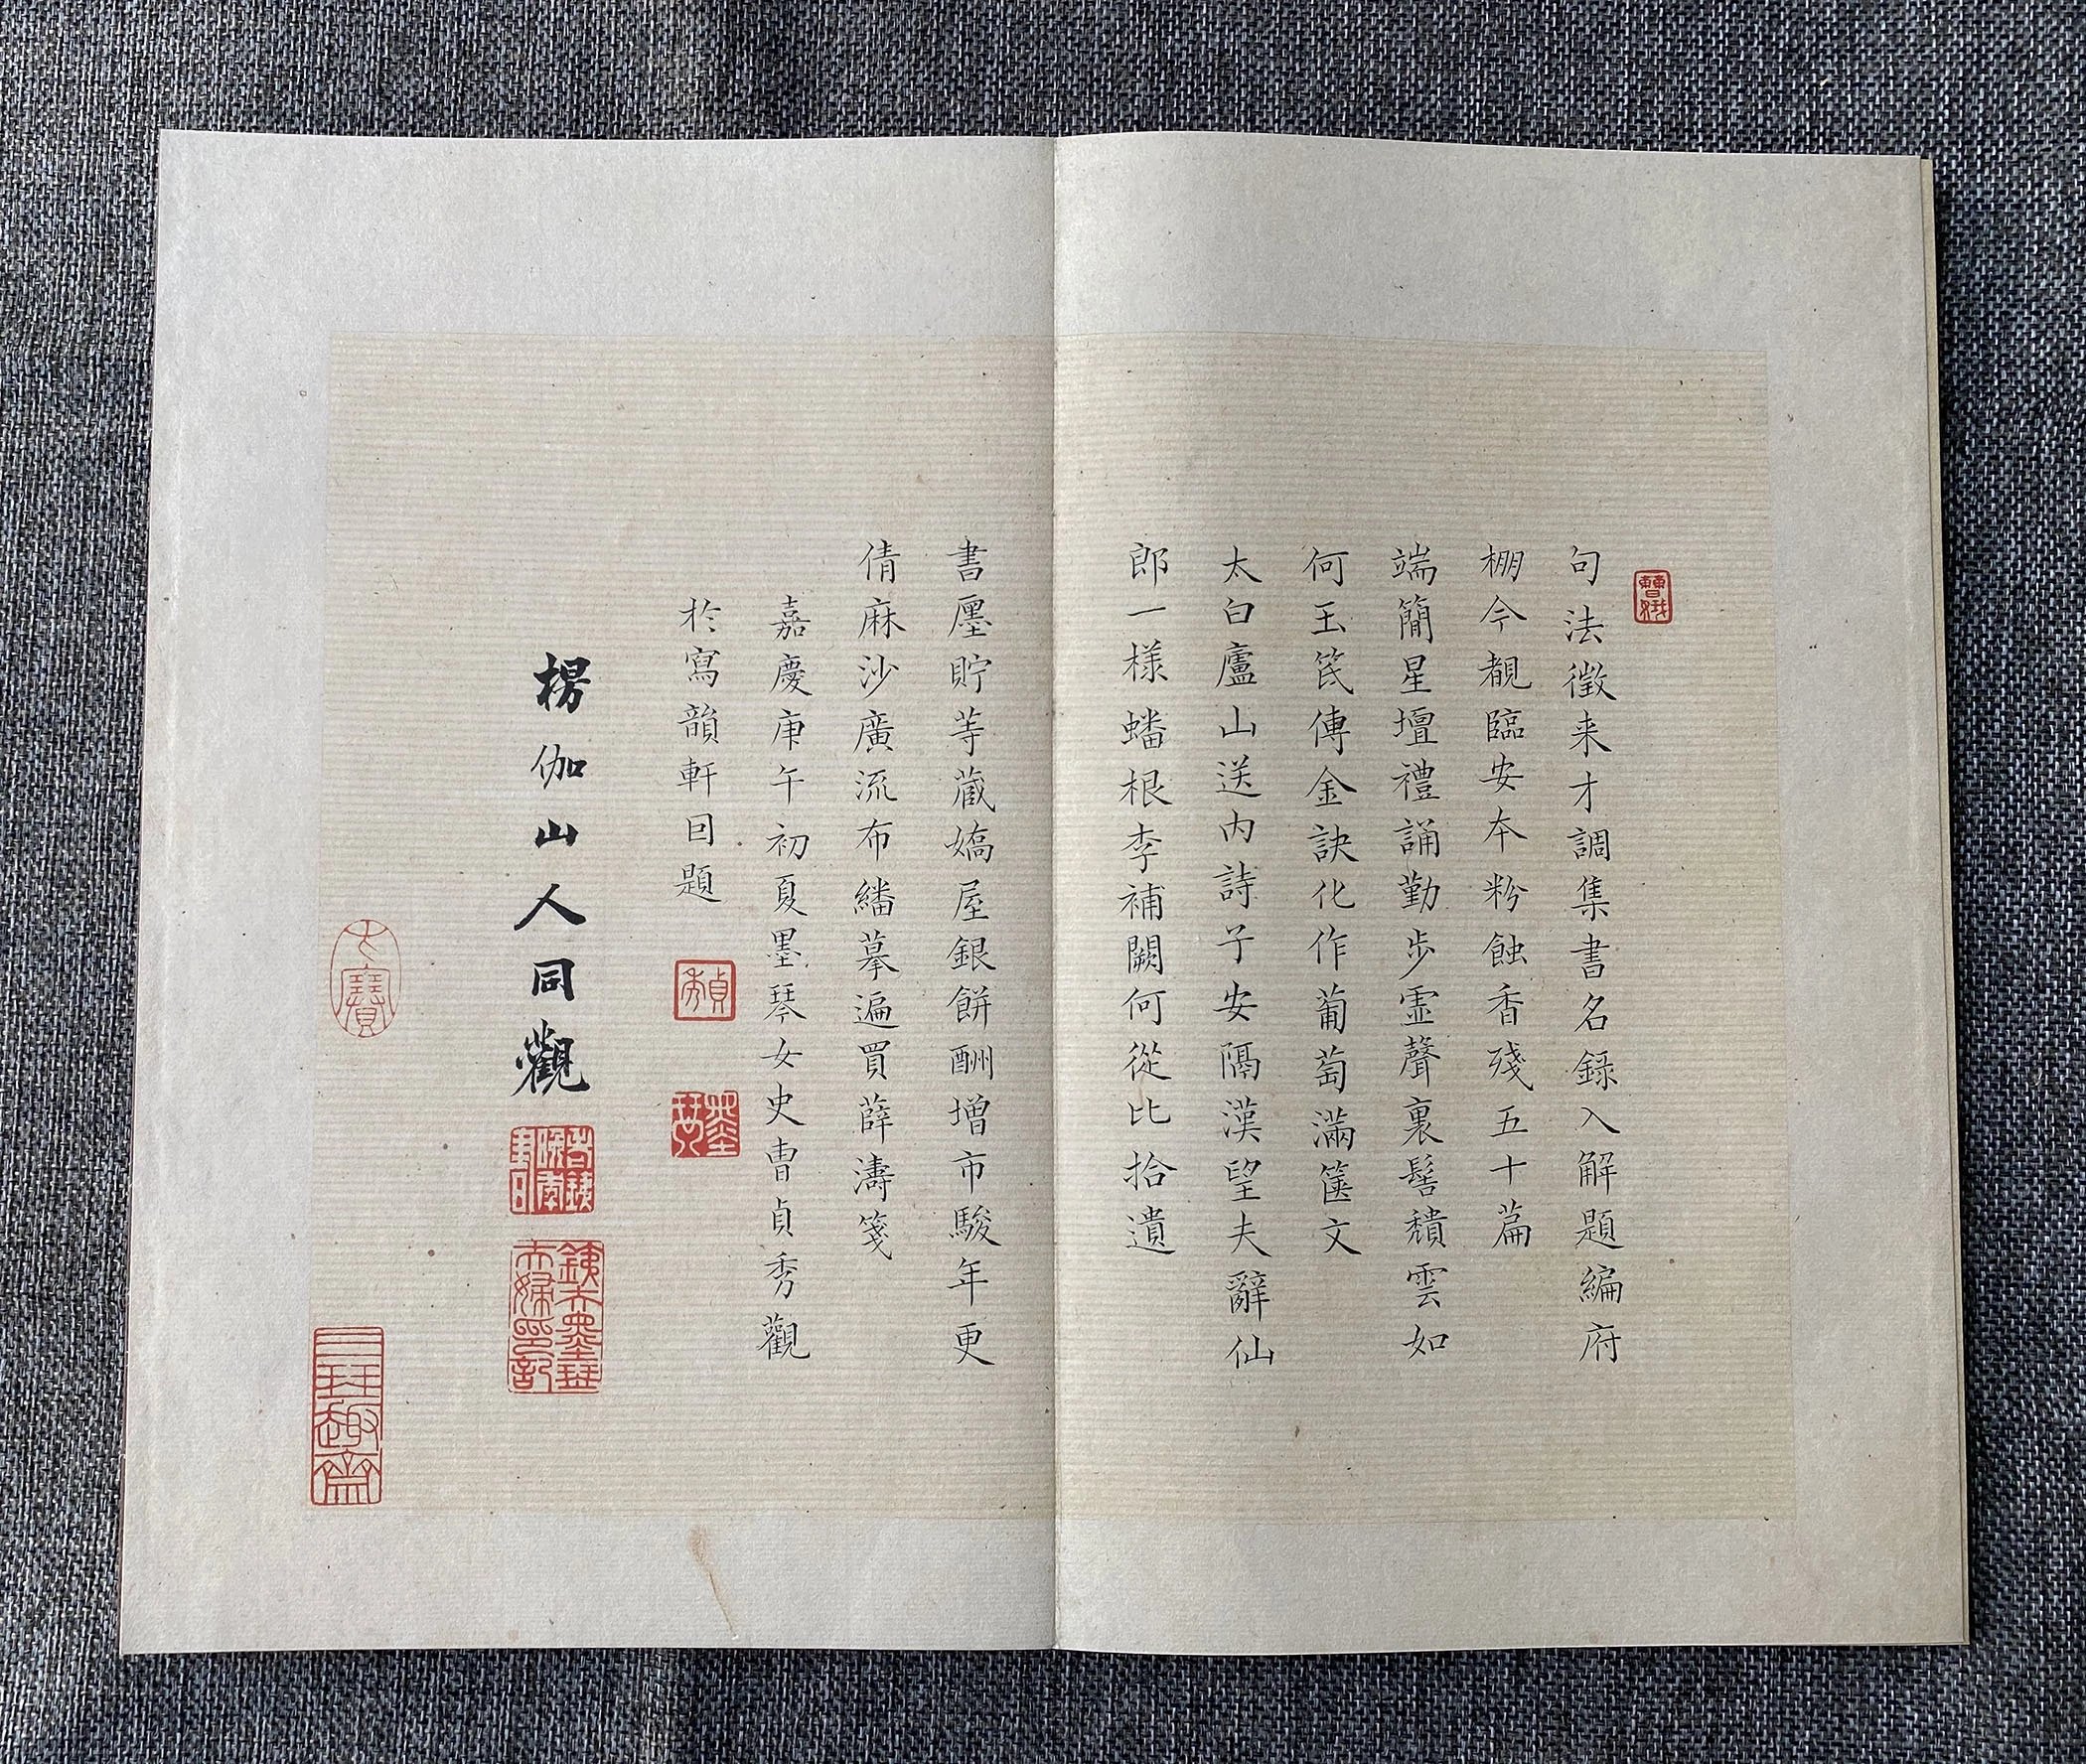 句法徴来才調集書名録入解題編府
棚今覩臨安本粉蝕香殘五十篇
端簡星壇禮誦勤步虛聲裏髻鬟雲如
何玉笢傳金訣化作葡萄滿篋文
太白廬山送內詩子安隔漢望夫辭仙
郎一樣蟠根李補闕何從比拾遺
書墨貯等蔵嬌屋銀餅酬增市駿年更
倩麻沙廣流布繙摹遍買薛濤箋
嘉慶庚午初夏墨琴女史曹貞秀觀
於寫韻軒囙題
楞伽山人同觀
曹娥
貞秀
墨琴
鐵夫墨琴夫婦印記
三琴趣齋